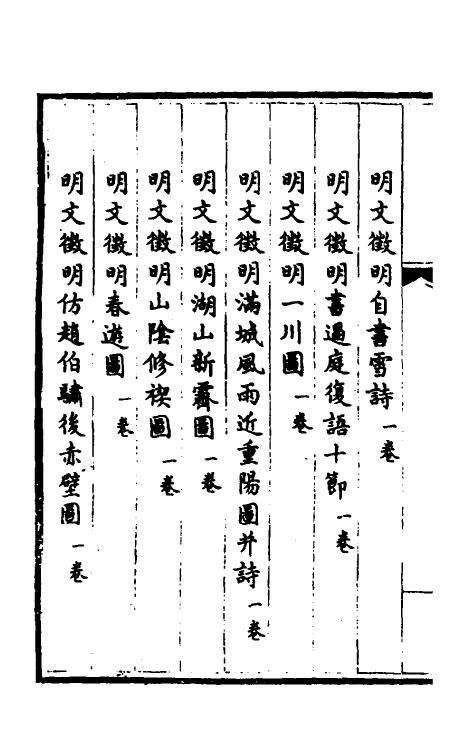 明文徵明自書雪詩一卷
明文徵明書過庭復語十節一卷
明文徵明一川圖一卷
明文徵明滿城風雨近重陽圖并詩一卷
明文徵明湖山新霽圖一卷
明文徵明山陰修禊圖一卷
明文徵明春遊圖一卷
明文徵明仿趙伯驌後赤壁圖一卷